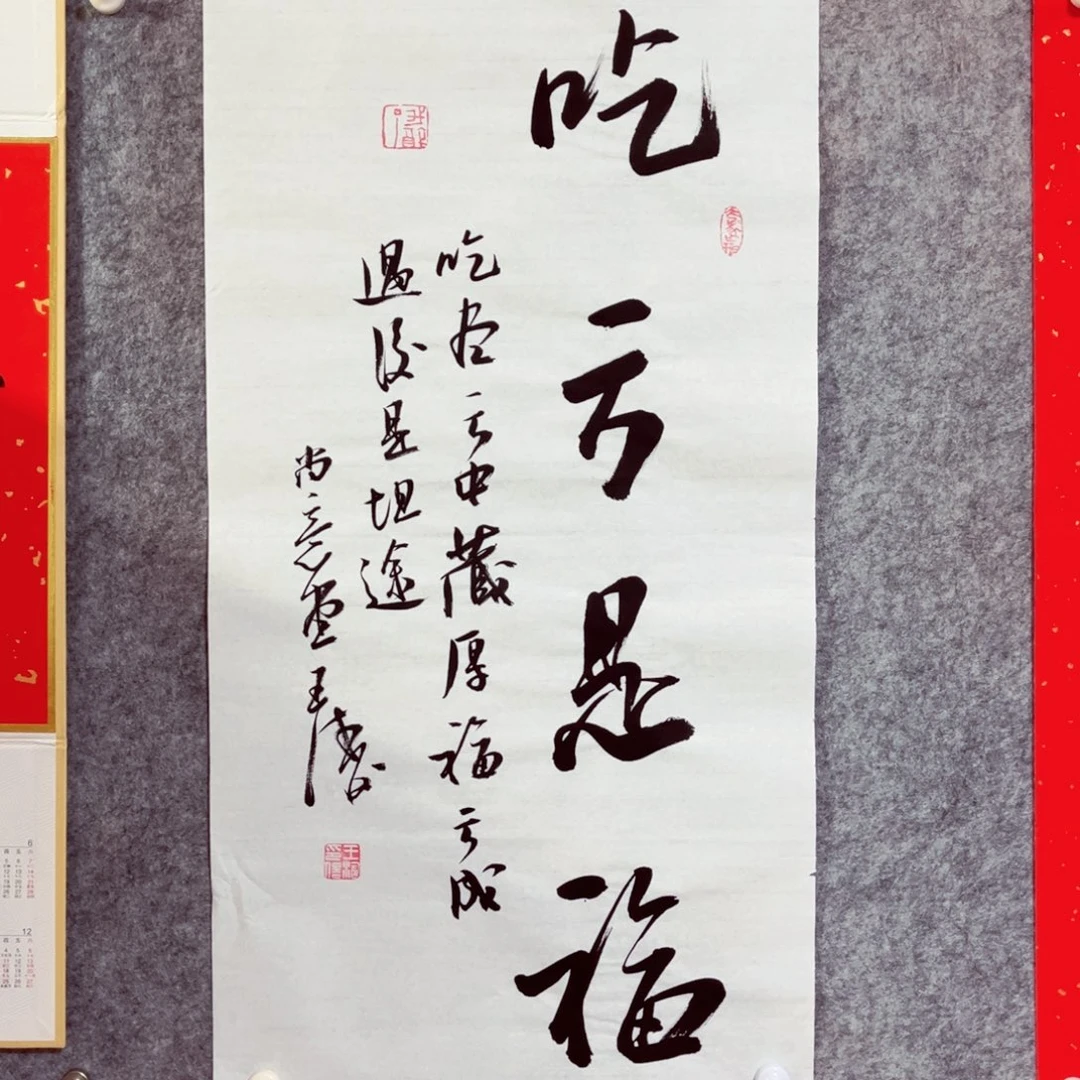 吃亏是福
吃尽亏中藏厚福亏成
过后是坦途
尚意堂王
6
12